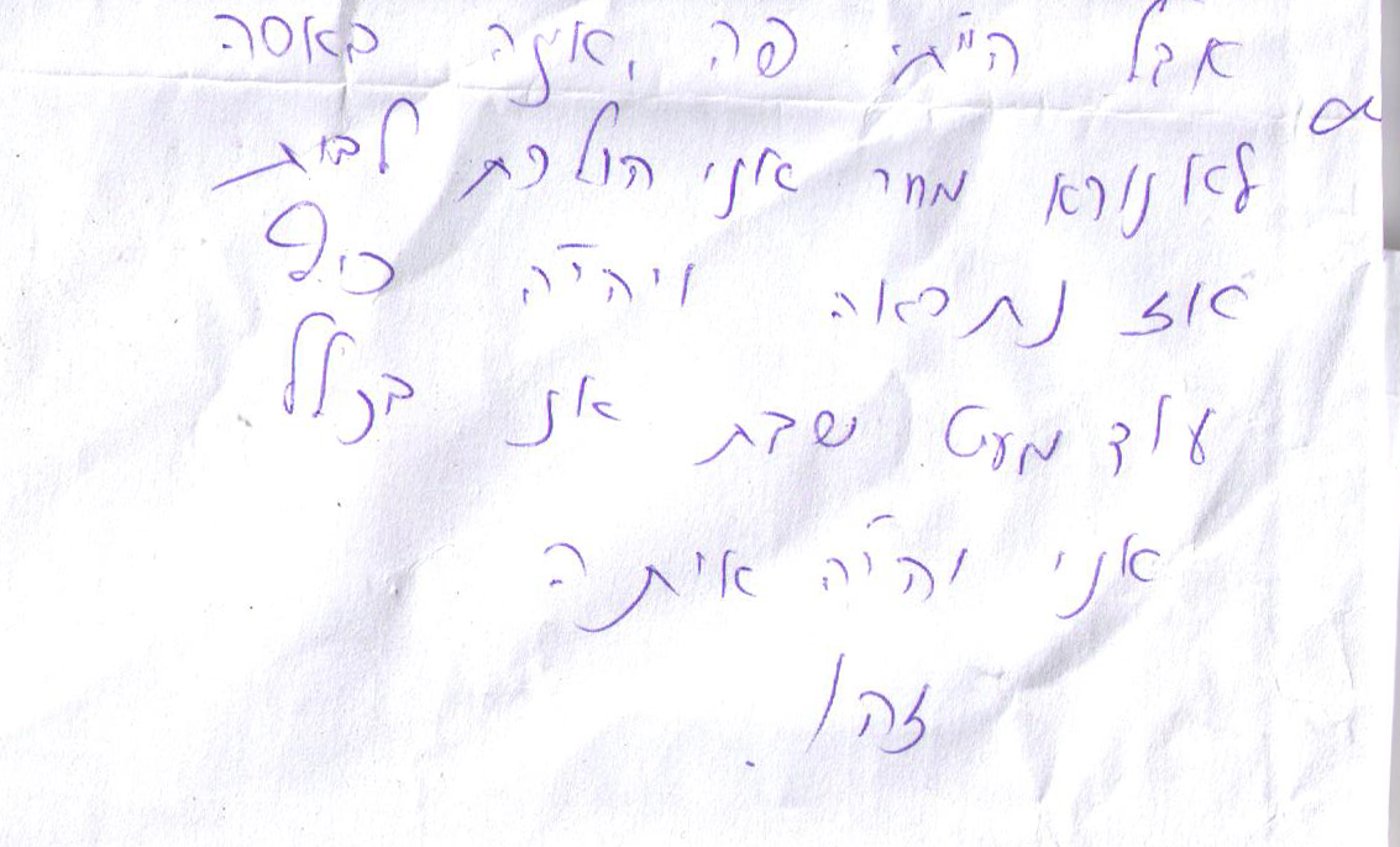 אבל הייתי פה, איזה באסה
לא נורא מחר אני הולכת לבית
אז נתראה ויהיה כיף
עוד מעט שבת אז בכלל
אני והיה איתה
זהו.